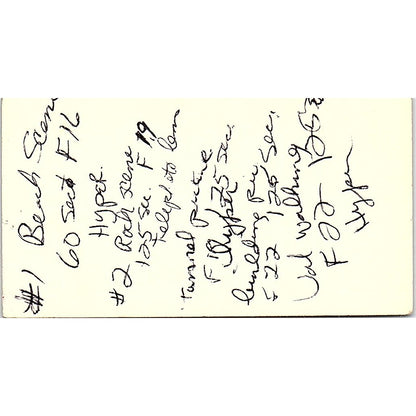 #1 Beach Scene
60 Sec F16
Hyper.
#2 Rock Scene
125 Sec. F 19
Telephoto lens
Tunnel picture
F Hyper 125 Sec.
building Pic
F 22 125 Sec.
Val Walking
F 22 125
Hyper